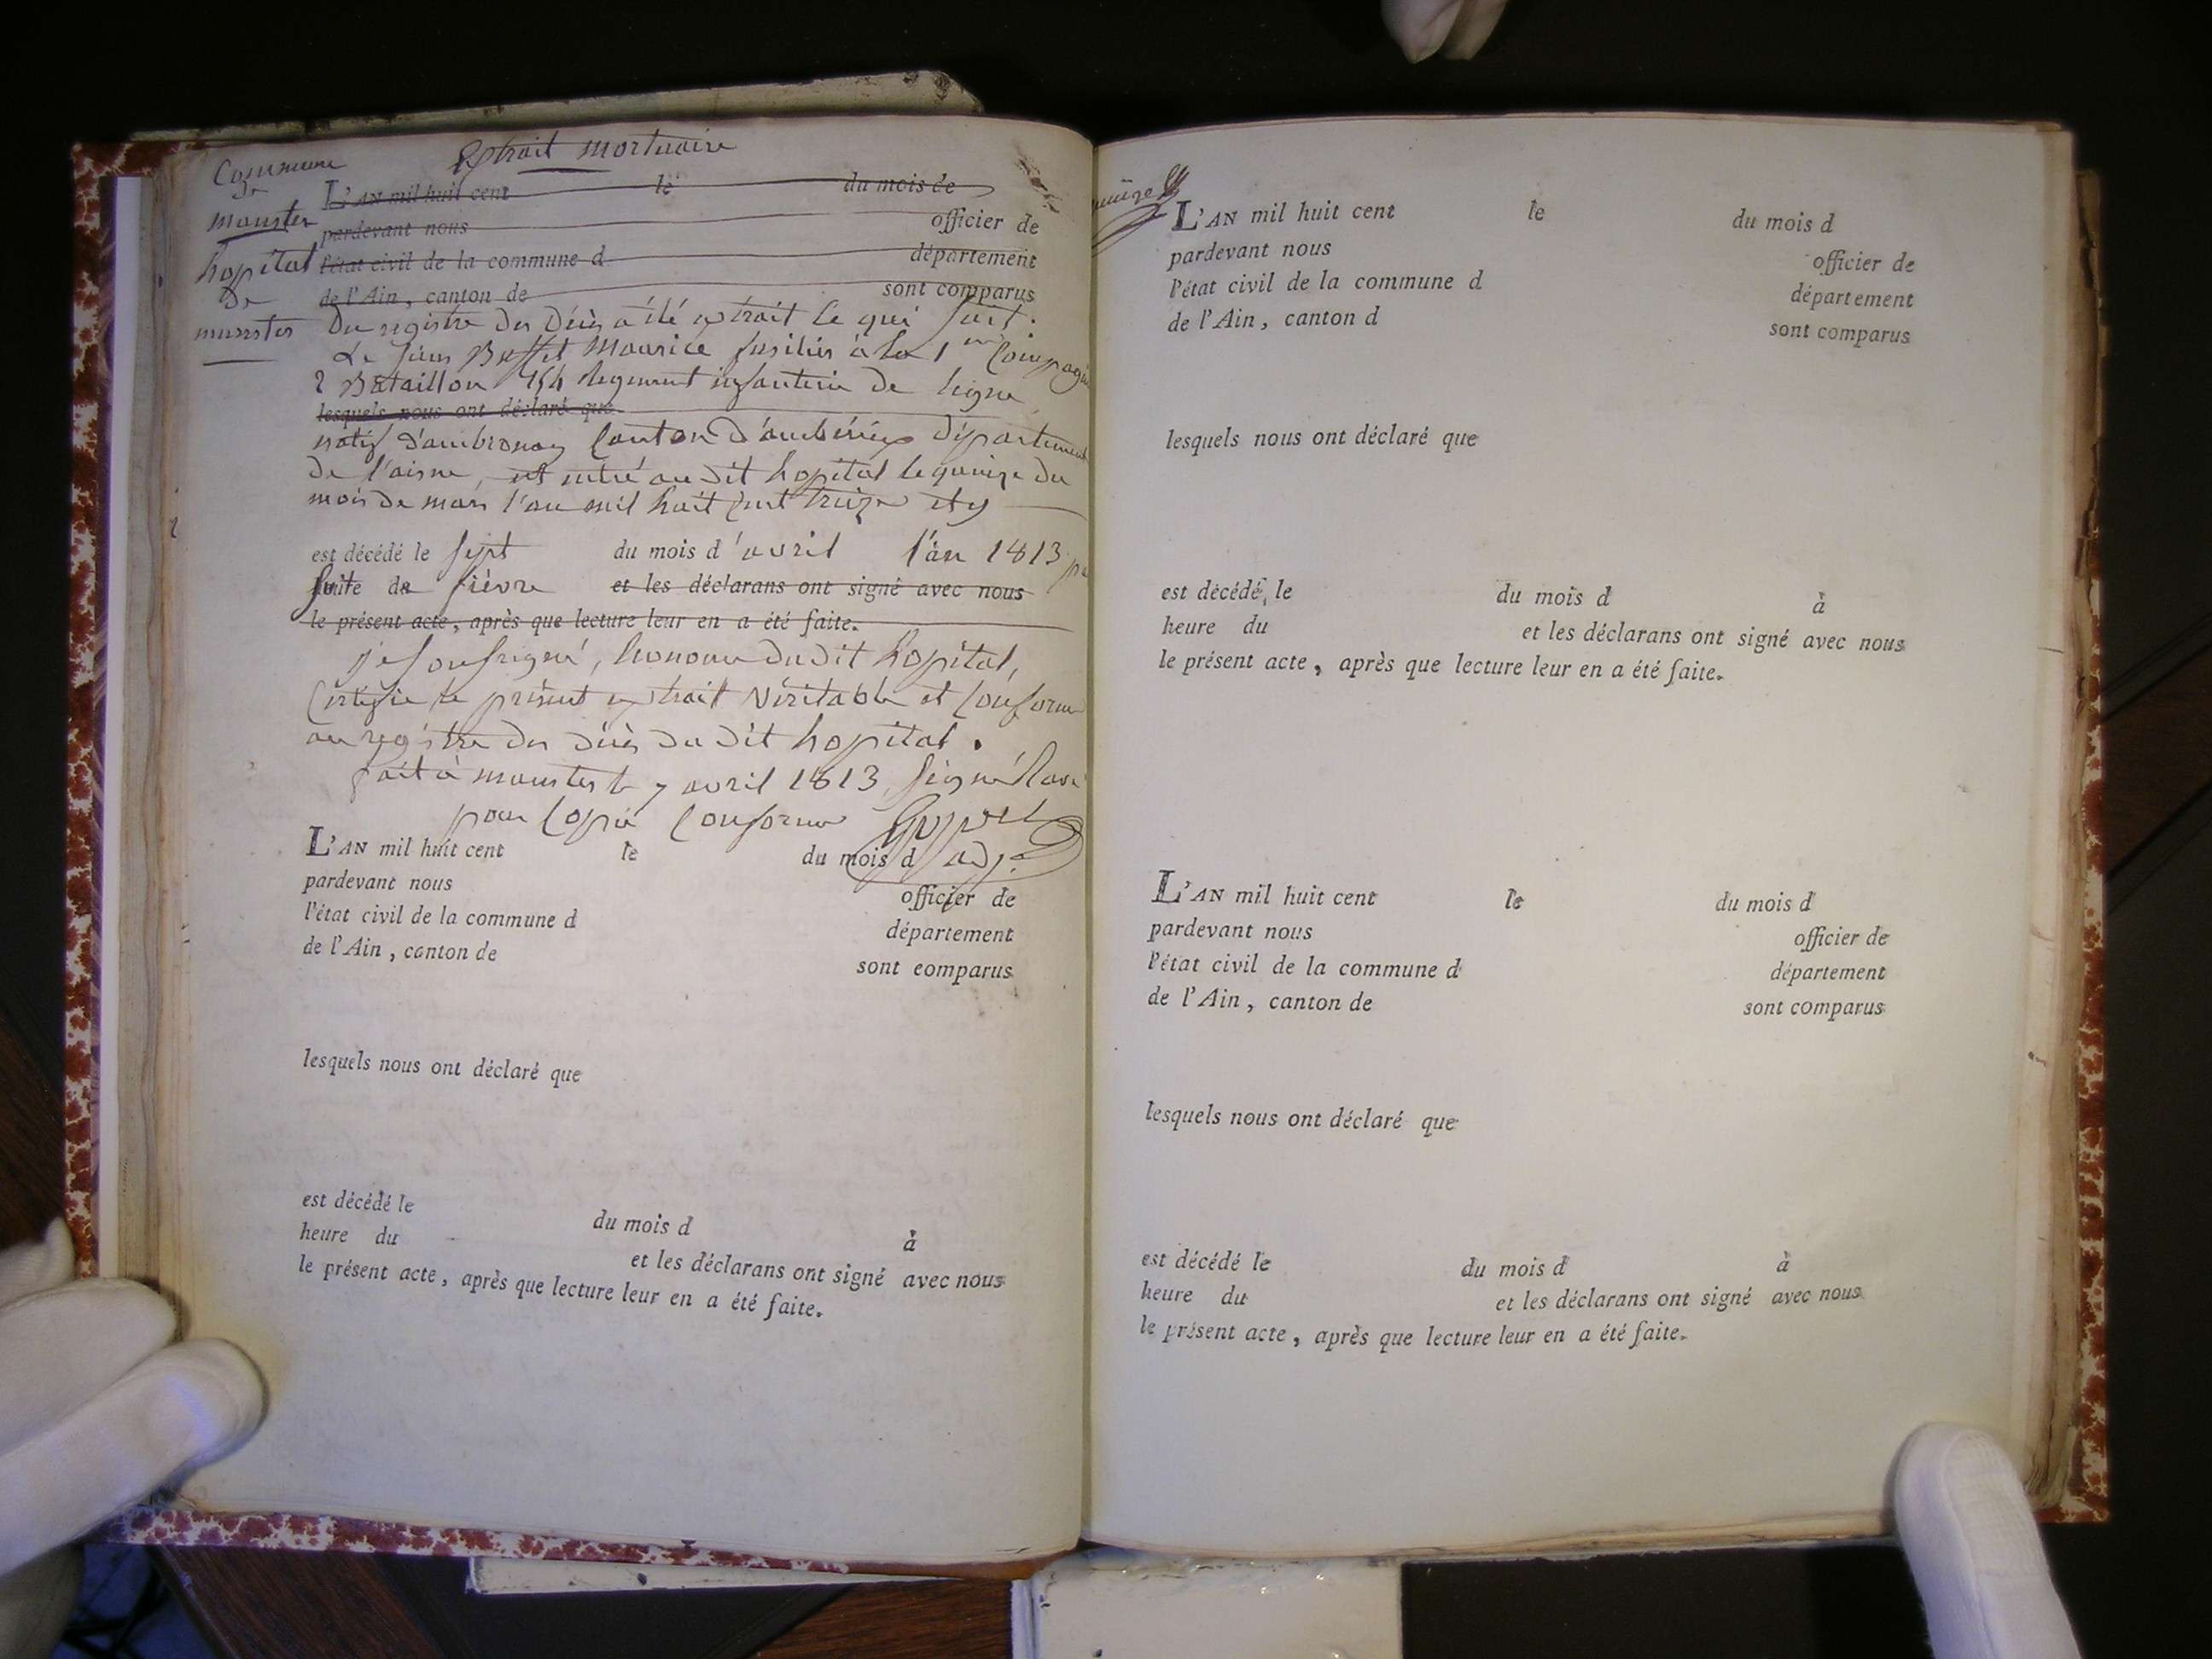 Extrait mortuaire
Commune
de
munster
hopital
de
munster
L'AN mil huit cent le du mois de
pardevant nous officier de
l'état civil de la commune d département
de l'Ain, canton de sont comparus
Du registre des Décès a été extrait le qui suit:
Le sieur Buffet Maurice fusilier à la 1ere Compagnie
2 Bataillon 154 regiment infanterie de ligne
lesquels nous ont déclaré que
natif d'ambronay Canton d'ambérieux département
de l'aisne, est entré au dit hopital le quinze du
mois de mars l'an mil huit cent treize et y
est décédé le sept du mois d'avril l'an 1813 par
suite de fièvre et les déclarans ont signé avec nous
le présent acte, après que lecture leur en a été faite.
je soussigné, Econome du dit hopital,
Certifie le présent extrait véritable et conforme
au registre des décès du dit hopital.
fait à munster le 7 avril 1813, Signé
pour Copie Conforme
adj.
L'AN mil huit cent le du mois d
pardevant nous officier de
l'état civil de la commune d département
de l'Ain, canton de sont comparus
lesquels nous ont déclaré que
est décédé le du mois d à
heure du et les déclarans ont signé avec nous
le présent acte, après que lecture leur en a été faite.
L'AN mil huit cent le du mois d
pardevant nous officier de
l'état civil de la commune d département
de l'Ain, canton d sont comparus
lesquels nous ont déclaré que
est décédé, le du mois d à
heure du et les déclarans ont signé avec nous
le présent acte, après que lecture leur en a été faite.
L'AN mil huit cent le du mois d
pardevant nous officier de
l'état civil de la commune d département
de l'Ain, canton de sont comparus
lesquels nous ont déclaré que
est décédé le du mois d à
heure du et les déclarans ont signé avec nous
le présent acte, après que lecture leur en a été faite.